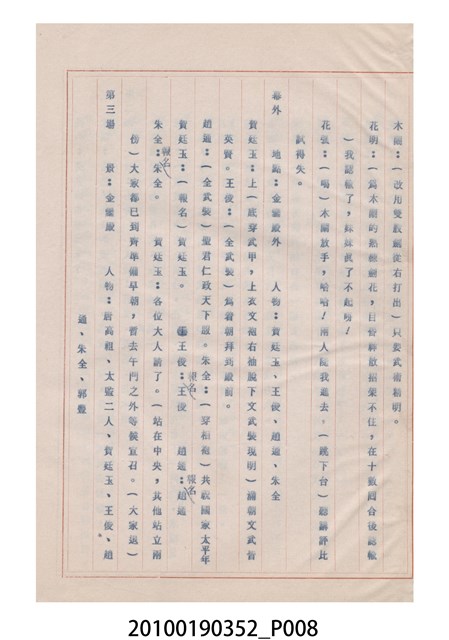 木蘭：（改用雙股劍從右打出）只要武術精明。
花明：（為木蘭的點艙翻花，目看招架不住，在十數回合後認輸
）我認輸了，妹妹真了不起呀！
花弧：（喝）木蘭放手，哈哈！兩人隨我進去。（跳下台）聽講評比
試得失。
幕外　地點：金鑾殿外　人物：賀廷玉、王俊、趙通、朱全
賀廷玉：上（底穿武甲，上衣文袍右袖脫下文武裝現明）滿朝文武皆
英賢。王俊：（全武裝）為着朝拜到殿前。
趙通：（全武裝）聖君仁政天下服。朱全：（穿相袍）共祝國家太平年
賀廷玉：（報名）賀廷玉。　王俊：報名王俊　趙通：報名趙通
朱全：報名朱全。　賀廷玉：各位大人請了。（站在中央，其他站立兩
傍）大家都已到齊準備早朝，暫去午門之外等候宣召。（大家退）
第三場　景：金鑾殿　人物：唐高祖、太監二人、賀廷玉、王俊、趙
通、朱全、郭豊
20100190352_P008